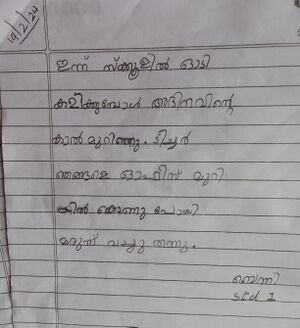 19/2/24
ഇന്ന് സ്ക്കൂളിൽ ഓടി
കളിക്കുമ്പോൾ അഭിനവിന്റെ
കാൽ മുറിഞ്ഞു. ടീച്ചർ
ഞങ്ങളെ ഓഫീസ് മുറി
യിൽ കൊണ്ടു പോയി
മരുന്ന് വച്ചു തന്നു.
ബെന്നി
Std 1